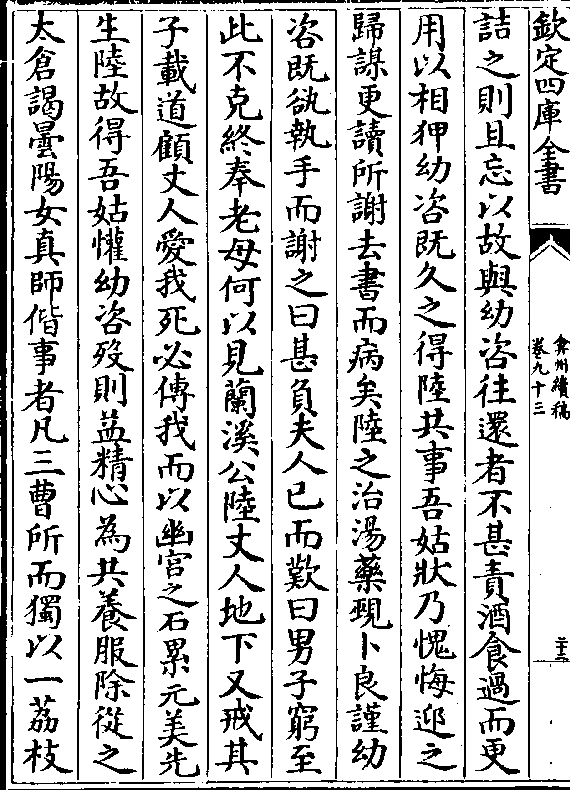 欽定四庫全書
弇州續稿
卷九十三
二十三
詰之則且忘以故與幼咨往還者不甚責酒食過而更
用以相狎幼咨既久之得陸共事吾姑狀乃愧悔迎之
歸謀更讀所謝去書而病矣陸之治湯藥覡卜良謹幼
咨既欲執手而謝之曰甚負夫人已而歎曰男子窮至
此不克終奉老母何以見蘭溪公陸丈人地下又戒其
子載道顧丈人愛我死必傳我而以幽宮之石累元美先
生陸故得吾姑懽幼咨歿則益精心為共養服除從之
太倉謁曇陽女真師偕事者凡三曹所而獨以一荔枝